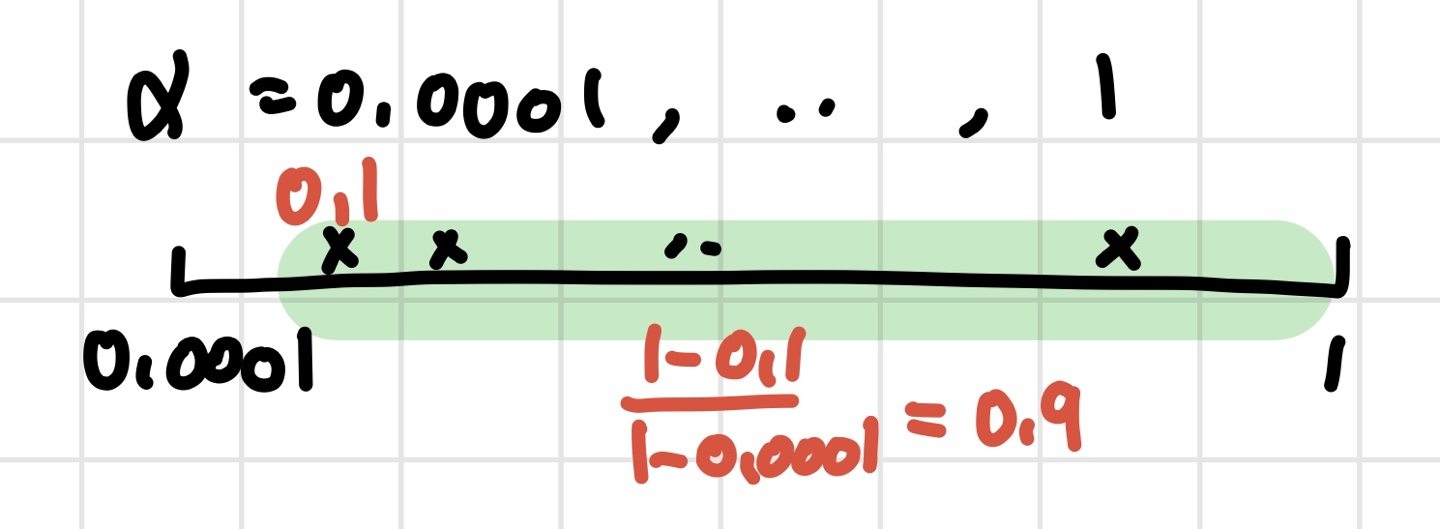 α = 0.0001, .. , 1
0.1
x x .. x
0.0001 1
1-0.1
1-0.0001 = 0.9